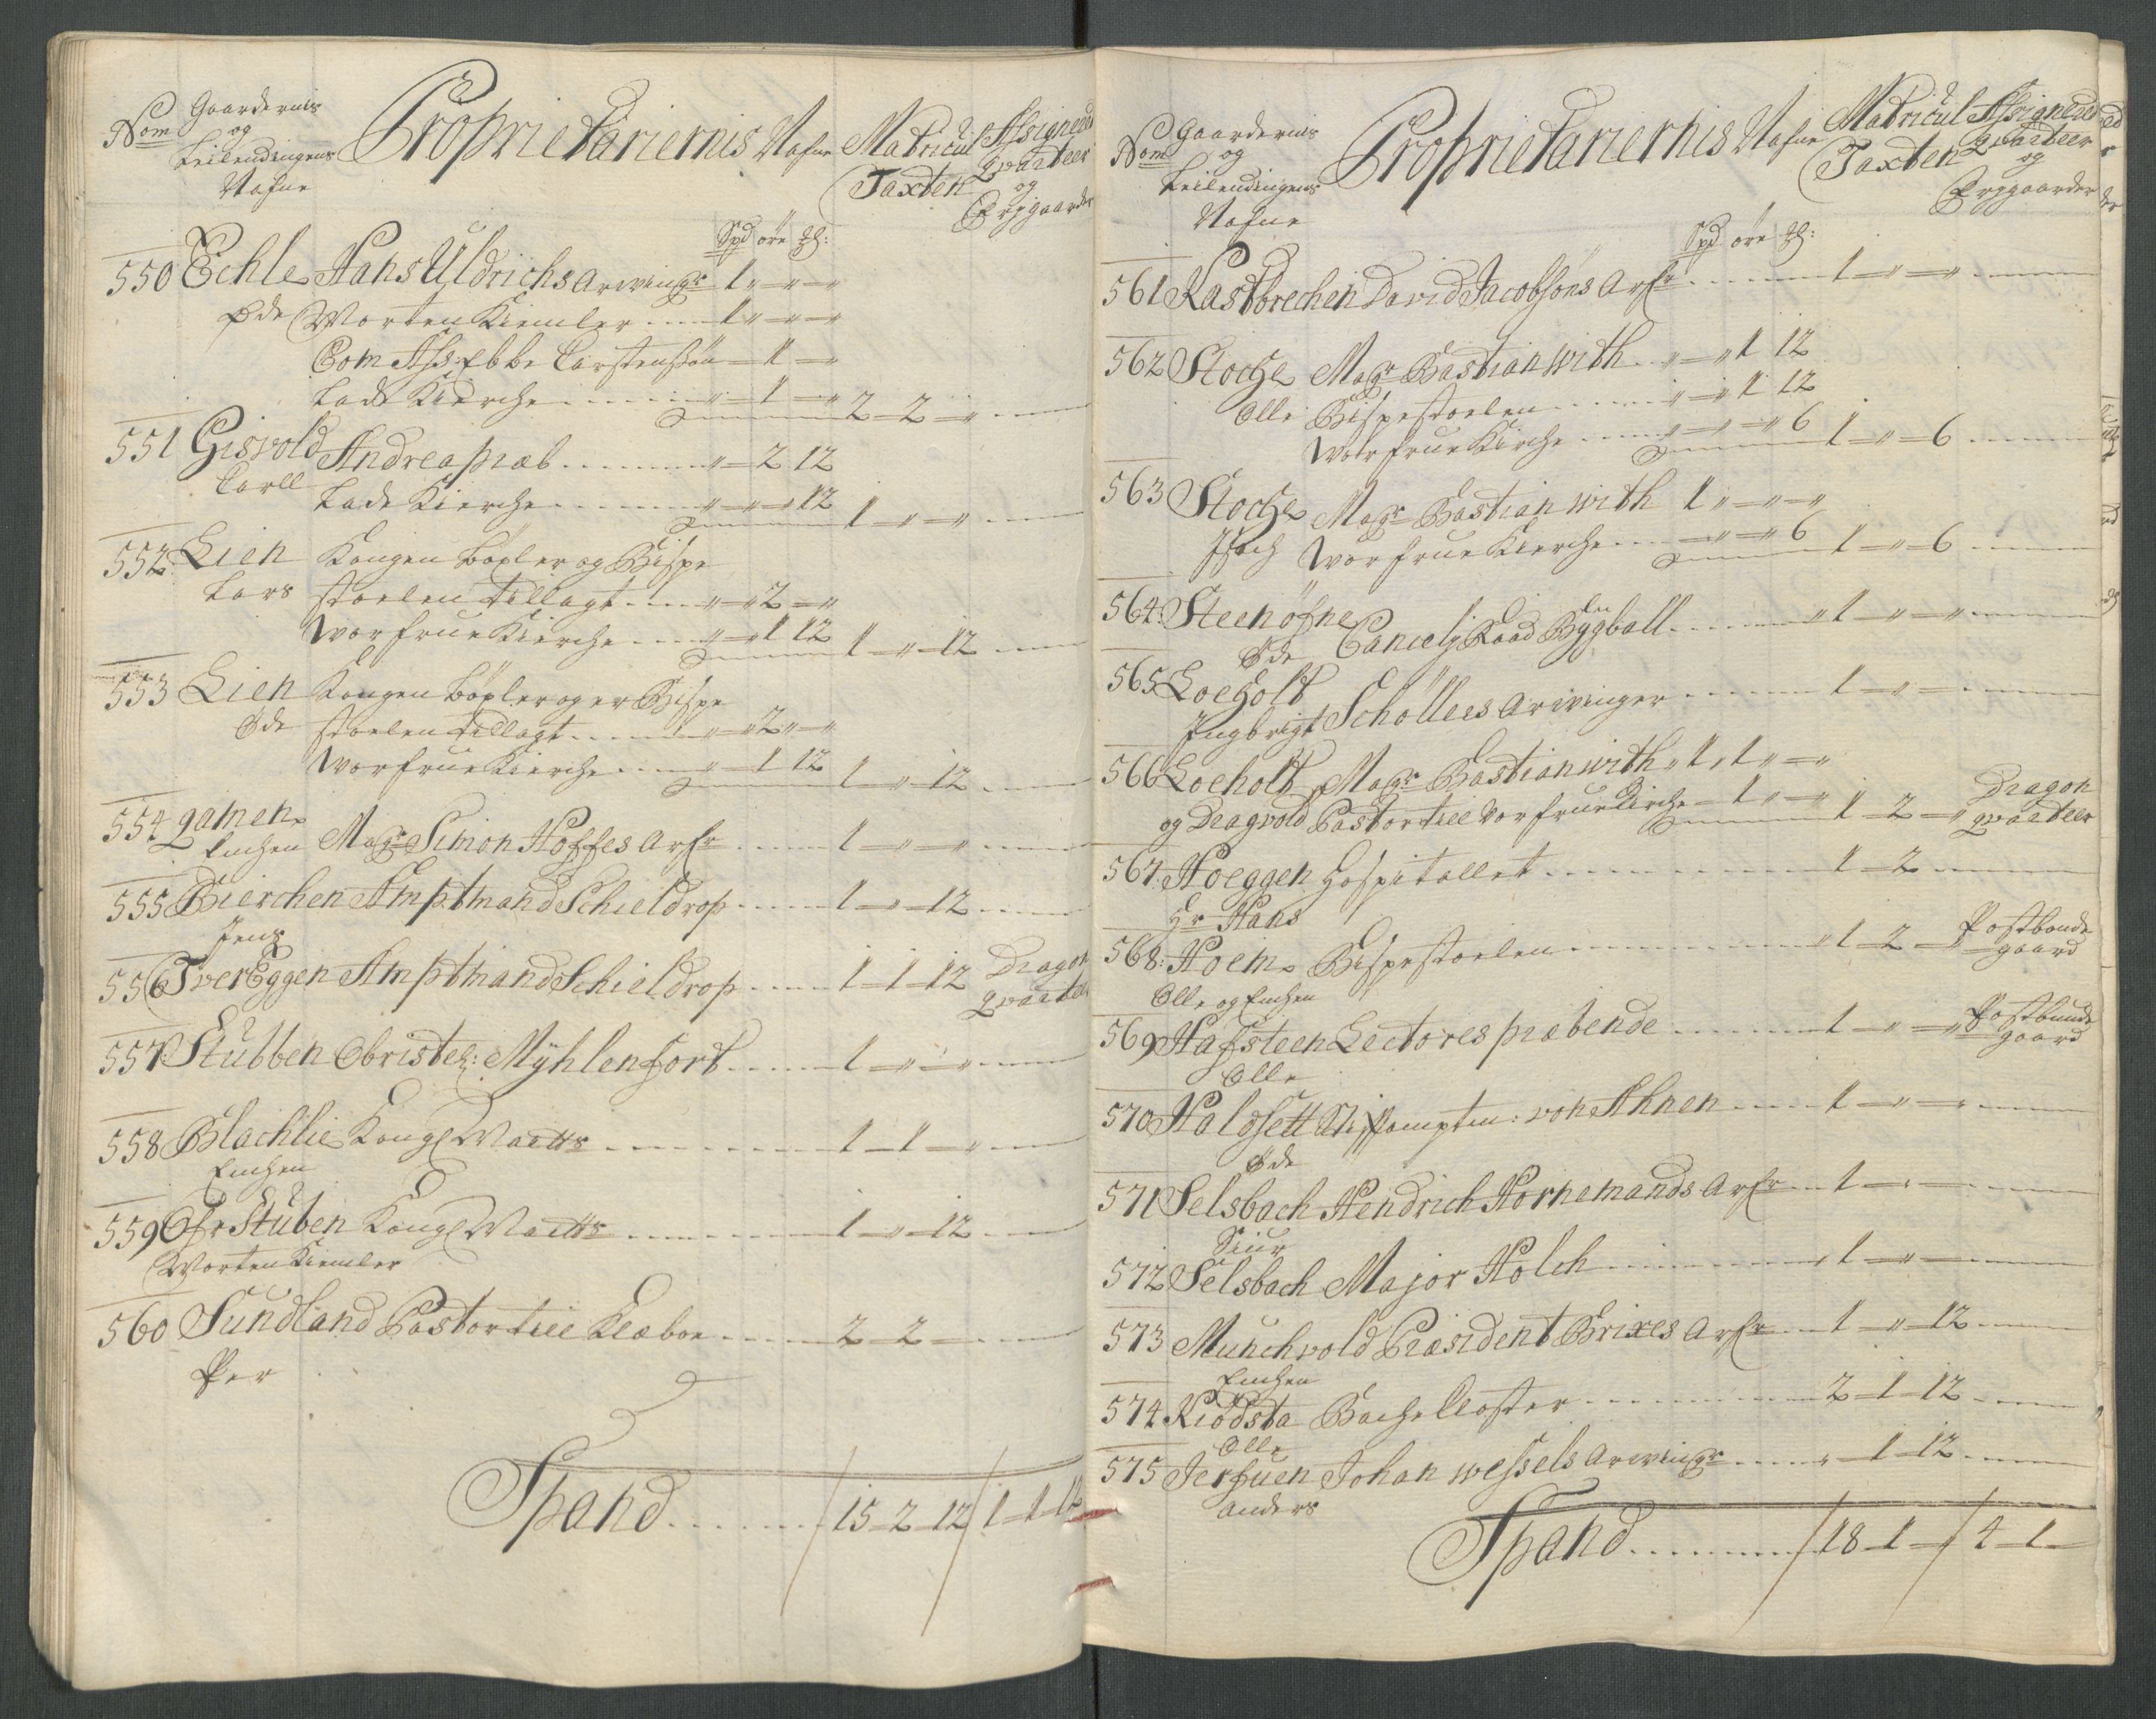 No
om
Gaardernis
og
Leilendingens
Nafne
Proprietariernis Nafne
Matricul
Taxten
Assignerede
Qvarteer
og
Frjgaarder
Spd öre ℔:
550 Echle Hans Uldrichs Arvingr 1 " — " — "
Øde Morten Kiemler 1 " — " — "
Com Ass: Ebbe Carstensøn — 1 — "
Lade Kierche " — 1 — " 2 — 2 — "
551 Gisvold Andrea præb " — 2 12
Carll
Lade Kierche " — " — 12 1 — " — "
552: Lien Kongen böxler og Bispe
Lars stoelen tillagt " — 2 — "
Wor frue Kierche " — 1 12 1 — " — 12
553 Lien Kongen böxler og er Bispe
Øde stoelen tillagt " — 2 " — "
Wor frue Kierche " — 1 12 1 — " — 12
554 Qamen
Emchen Magr Simon Hoffes Arfr 1 — " — "
555 Bierchen Amptmand Schieldrop 1 — " — 12
Jens
556 TverEggen Amptmand Schieldrop 1 — 1 — 12 Dragon
Qvarteer
557: Stubben Obristel: Myhlenfort 1 — " — "
558 Blachlie Kongl Maÿtts 1 — 1 — "
Emchen
559 Ofr Stuben Kongl Maÿtts 1 — " — 12
Morten Kiemler
560 Sundland Pastor till Klæboe 2 — 2 —
Per
Spand 15 — 2 — 12 / 1 — 1 — 12
No
om
Gaardernis
og
Leilendingens
Nafne
Proprietariernis Nafne
Matricul
Taxten
Assignerede
Qvarteer
og
Frjgaarder
Spd öre ℔:
561 Kastbrechen David Jacobsøns Arfr 1 — " — "
562 Stoche Magr Bastian With " — " 1 12
Olle Bispestoelen " — " 1 12
Wor frue Kirche " — " — 6 1 — " — 6
563 Stoche Magr Bastian With 1 " — " — "
Isach Wor frue Kierche — " — " 6 1 — " — 6
564: Steenøfne
Øde Cancelj Raad Bygball " 1 — " — "
565 Loeholt
Ingbrigt Schøllers Arvinger 1 — " —
566 Loeholt Magr Bastian With " 1 " 1 " — "
og Dragvold Pastor till Vor frue Kirche — 1 " — " 1 — 2 — " Dragon
Qvarteer
567: Hoeggen Hospitallet 1 — 2
Hr Hans
568: Hoem Bispestoelen " 1 — 2 — " Postbonde
gaard
Olle og Emchen
569 Hafsteen Lectores præbende 1 — " — " Postbunde
gaard
Olle
570 Haldsett Kompten: von Ahnen 1 — " —
Øde
571 Selsbach Hendrich Hornemands Arfr 1 — " —
Siur
572 Selsbach Major Holch 1 — " —
573 Munchvold Præsident Brixes Arfr 1 — " — 12
Emchen
574 Kiödsta Bache Closter 2 — 1 — 12
Olle
575 Jerfuen Johan Wessels Arvingr " — 1 — 12
Anders
Spand 18 — 1 — / 4 — 1 —